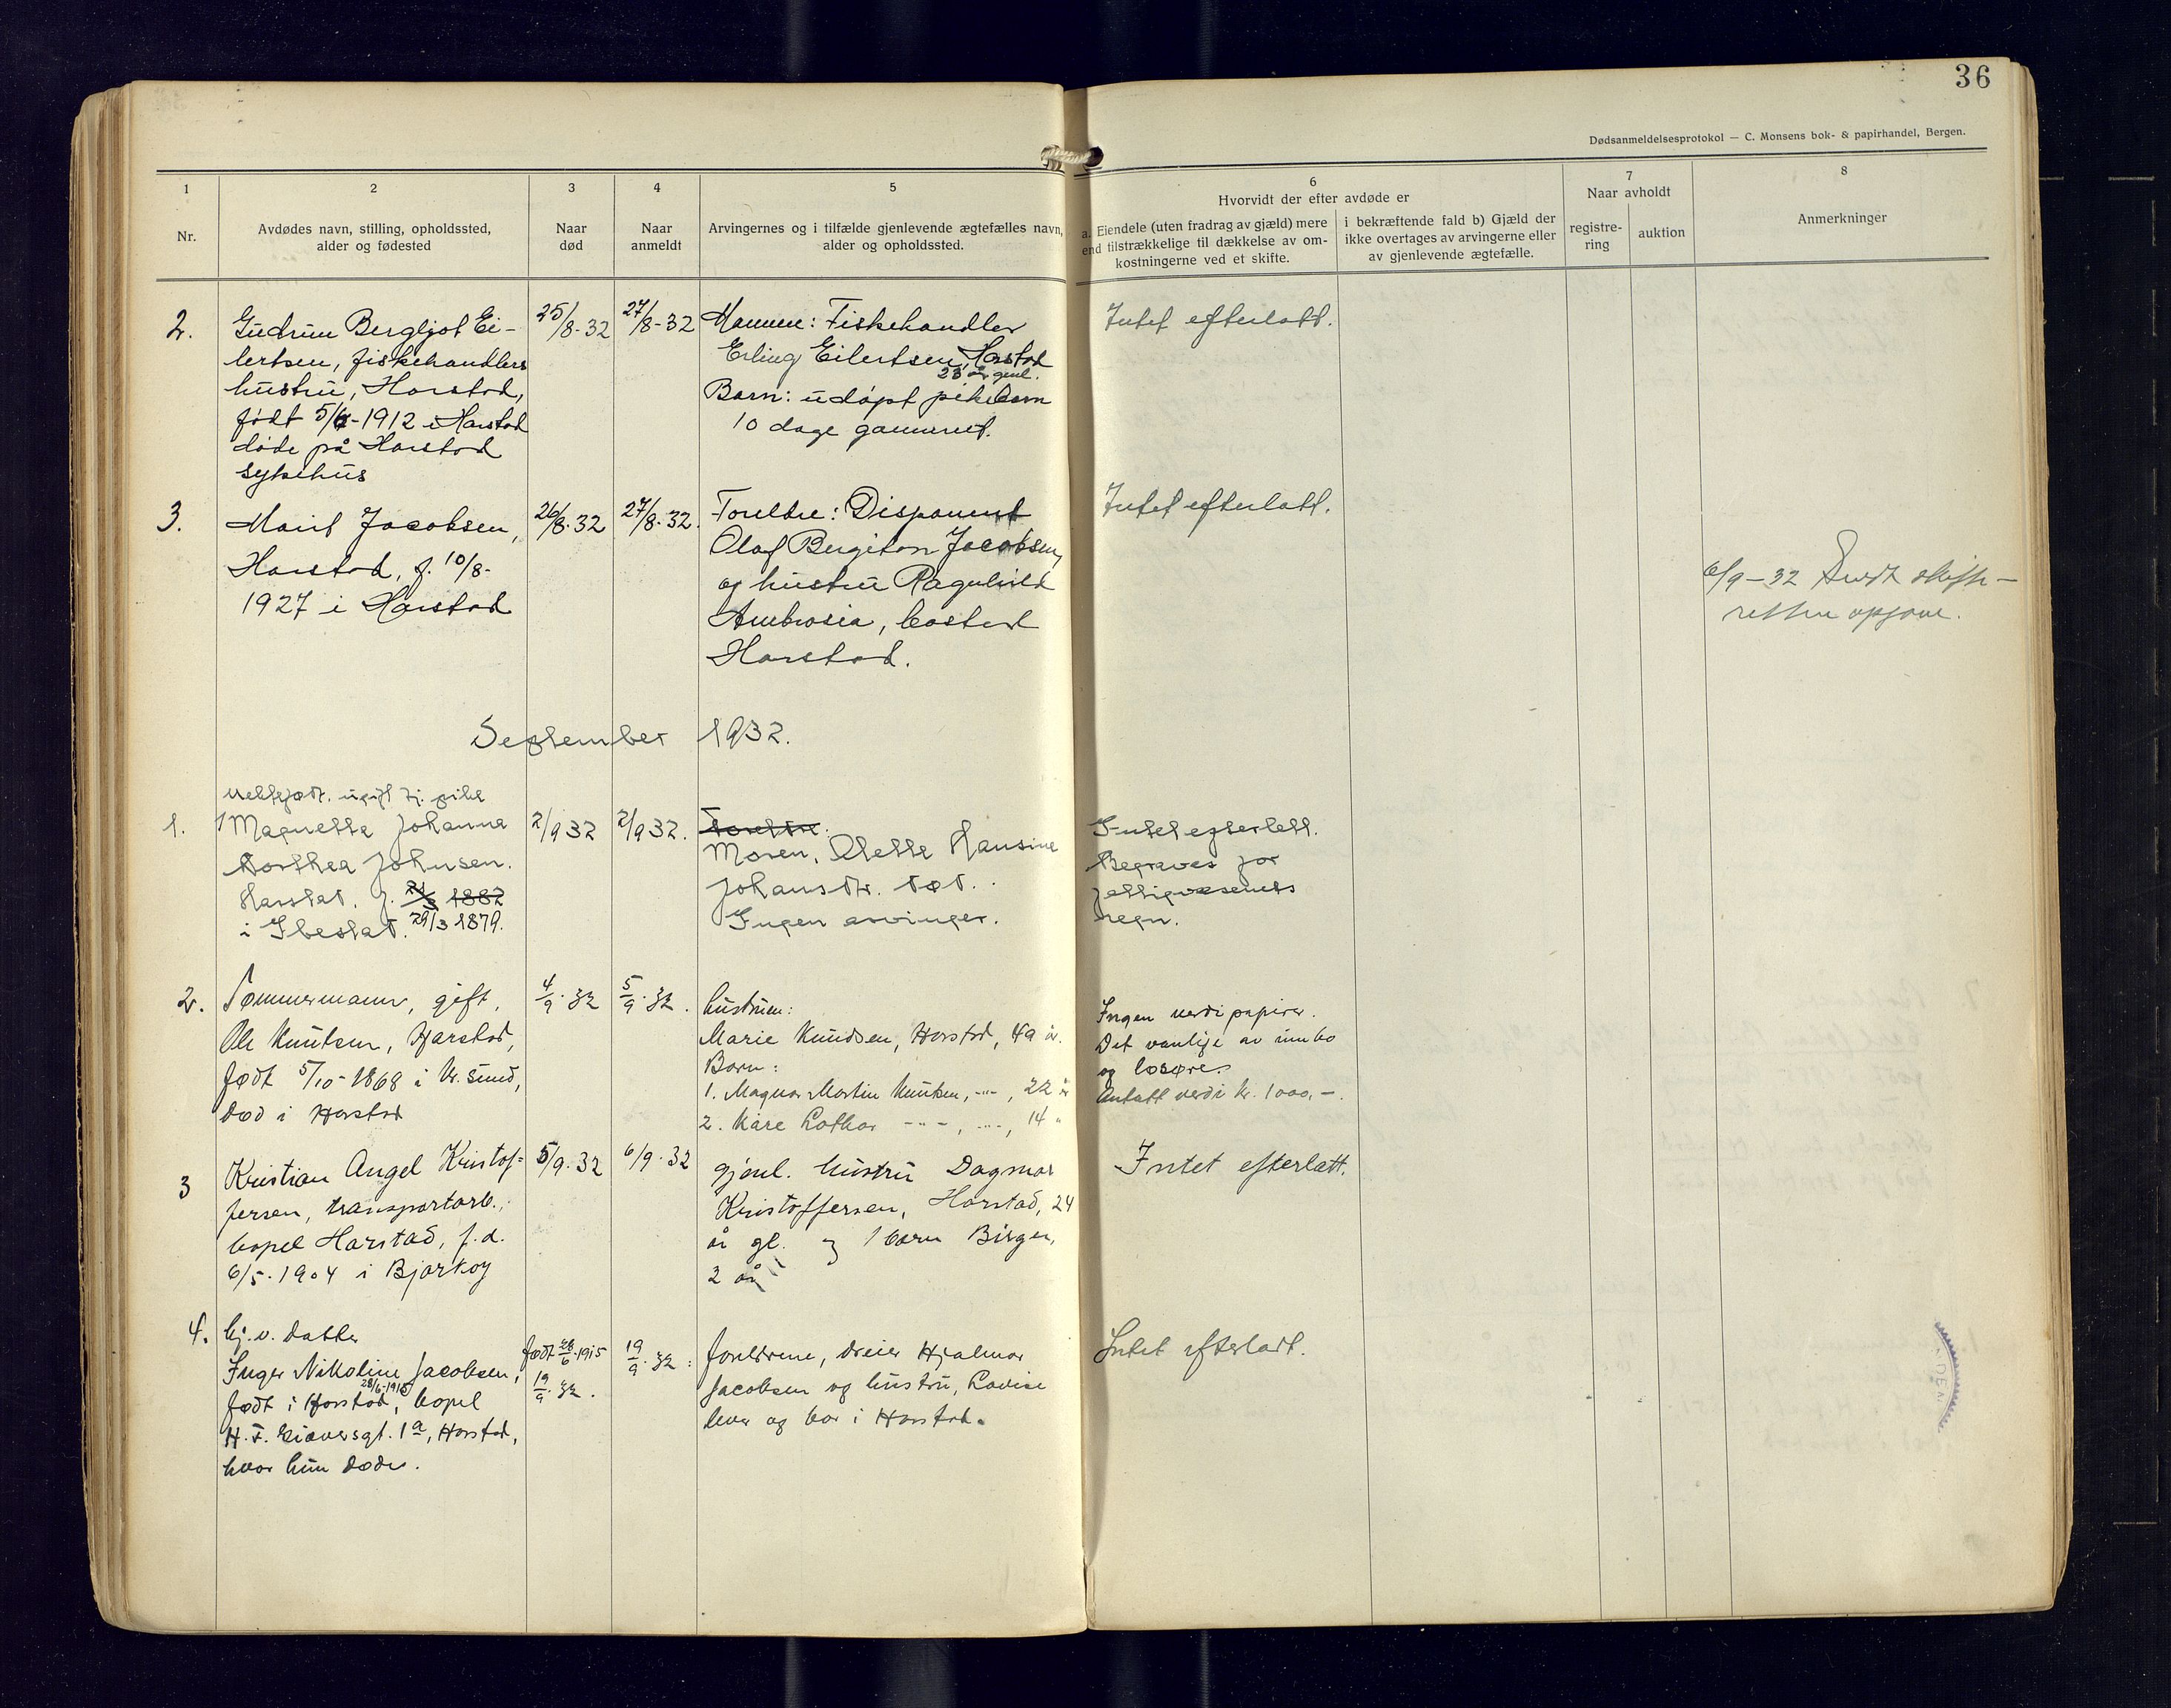 36
Dødsanmeldelsesprotokol — C. Monsens bok- & papirhandel, Bergen.
1
Nr.
2
Avdødes navn, stilling, opholdssted,
alder og fødested
3
Naar
død
4
Naar
anmeldt
5
Arvingernes og i tilfælde gjenlevende ægtefælles navn,
alder og opholdssted.
6
Hvorvidt der efter avdøde er
a. Eiendele (uten fradrag av gjæld) mere
end tilstrækkelige til dækkelse av om-
kostningerne ved et skifte.
i bekræftende fald b) Gjæld der
ikke overtages av arvingerne eller
av gjenlevende ægtefælle.
7
Naar avholdt
registre-
ring
auktion
8
Anmerkninger
2.
Gudrun Bergljot Ei-
lertsen, fiskehandlers
hustru, Harstad,
født 5/6-1912 i Harstad
døde på Harstad
sykehus
25/8-32
27/8-32
Mannen: Fiskehandler
Erling Eilertsen, Harstad
23 år gml.
Barn: udøpt pikebarn
10 dage gammelt.
Intet efterlatt.
3.
Marit Jacobsen,
Harstad, f. 10/8-
1927 i Harstad
26/8-32
27/8-32.
Foreldre: Disponent
Olaf Bergiton Jacobsen
og hustru Ragnhild
Ambrosia, bosted
Harstad.
Intet efterlatt.
6/9-32 Sendt skifte-
retten opgave.
September 1932.
1.
ugift tj. pike
Magnetta Johanna
Dorthea Johnsen.
Harstad. f. 1882
i Ibestad. 29/3 1879.
2/9 32
2/9 32.
Foreldre.
Moren, Alette Hansine
Johansdtr. død.
Ingen arvinger.
Intet efterlatt.
Begraves for
fattigvæsenets
regn.
2.
Tømmermann, gift,
Ole Knutsen, Harstad,
født 5/10-1868 i Kr.sund,
død i Harstad
4/9.32
5/9.32.
hustruen:
Marie Knudsen, Harstad, 49 år.
Barn:
1. Magnar Martin Knutsen, -"-, 22 år
2. Kåre Lothar -"-, -"-, 14 "
Ingen verdipapirer.
Det vanlige av innbo
og løsøre.
Antatt verdi kr. 1000,-.
3
Kristian Angel Kristof=
fersen, transportarb.,
bopel Harstad, f.d.
6/5-1904 i Bjarkøy
5/9.32
6/9.32
gjenl. hustru Dagmar
Kristoffersen, Harstad, 24
år gl. og 1 barn Birger,
2 år
Intet efterlatt.
4.
hj.v. datter
Inger Nikoline Jacobsen,
28/6-1915
født i Harstad, bopel
H. F. Giæversgt. 1a, Harstad,
hvor hun døde.
født 28/6-1915
19/9.32.
19/9.32:
foreldrene, dreier Hjalmar
Jacobsen og hustru, Lovise
lever og bor i Harstad.
Intet efterladt.